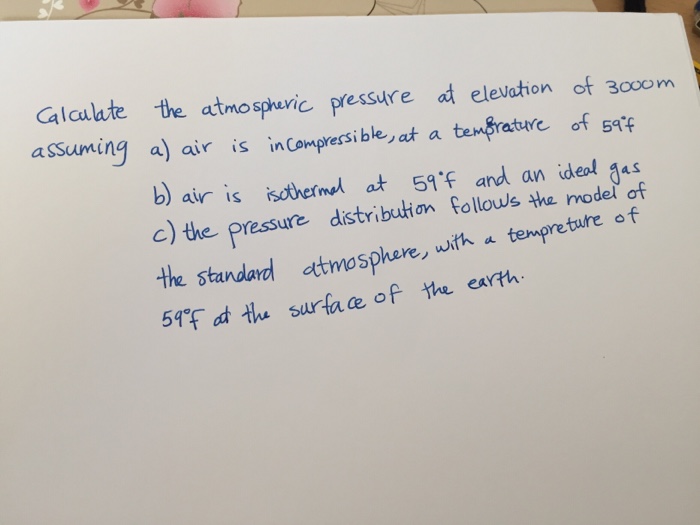 Calculate the atmospheric pressure at elevation of 3000m
assuming a) air is incompressible, at a temprature of 59°f
b) air is isothermal at 59°f and an ideal gas
c) the pressure distribution follows the model of
the standard atmosphere, with a tempreture of
59°f at the surface of the earth.